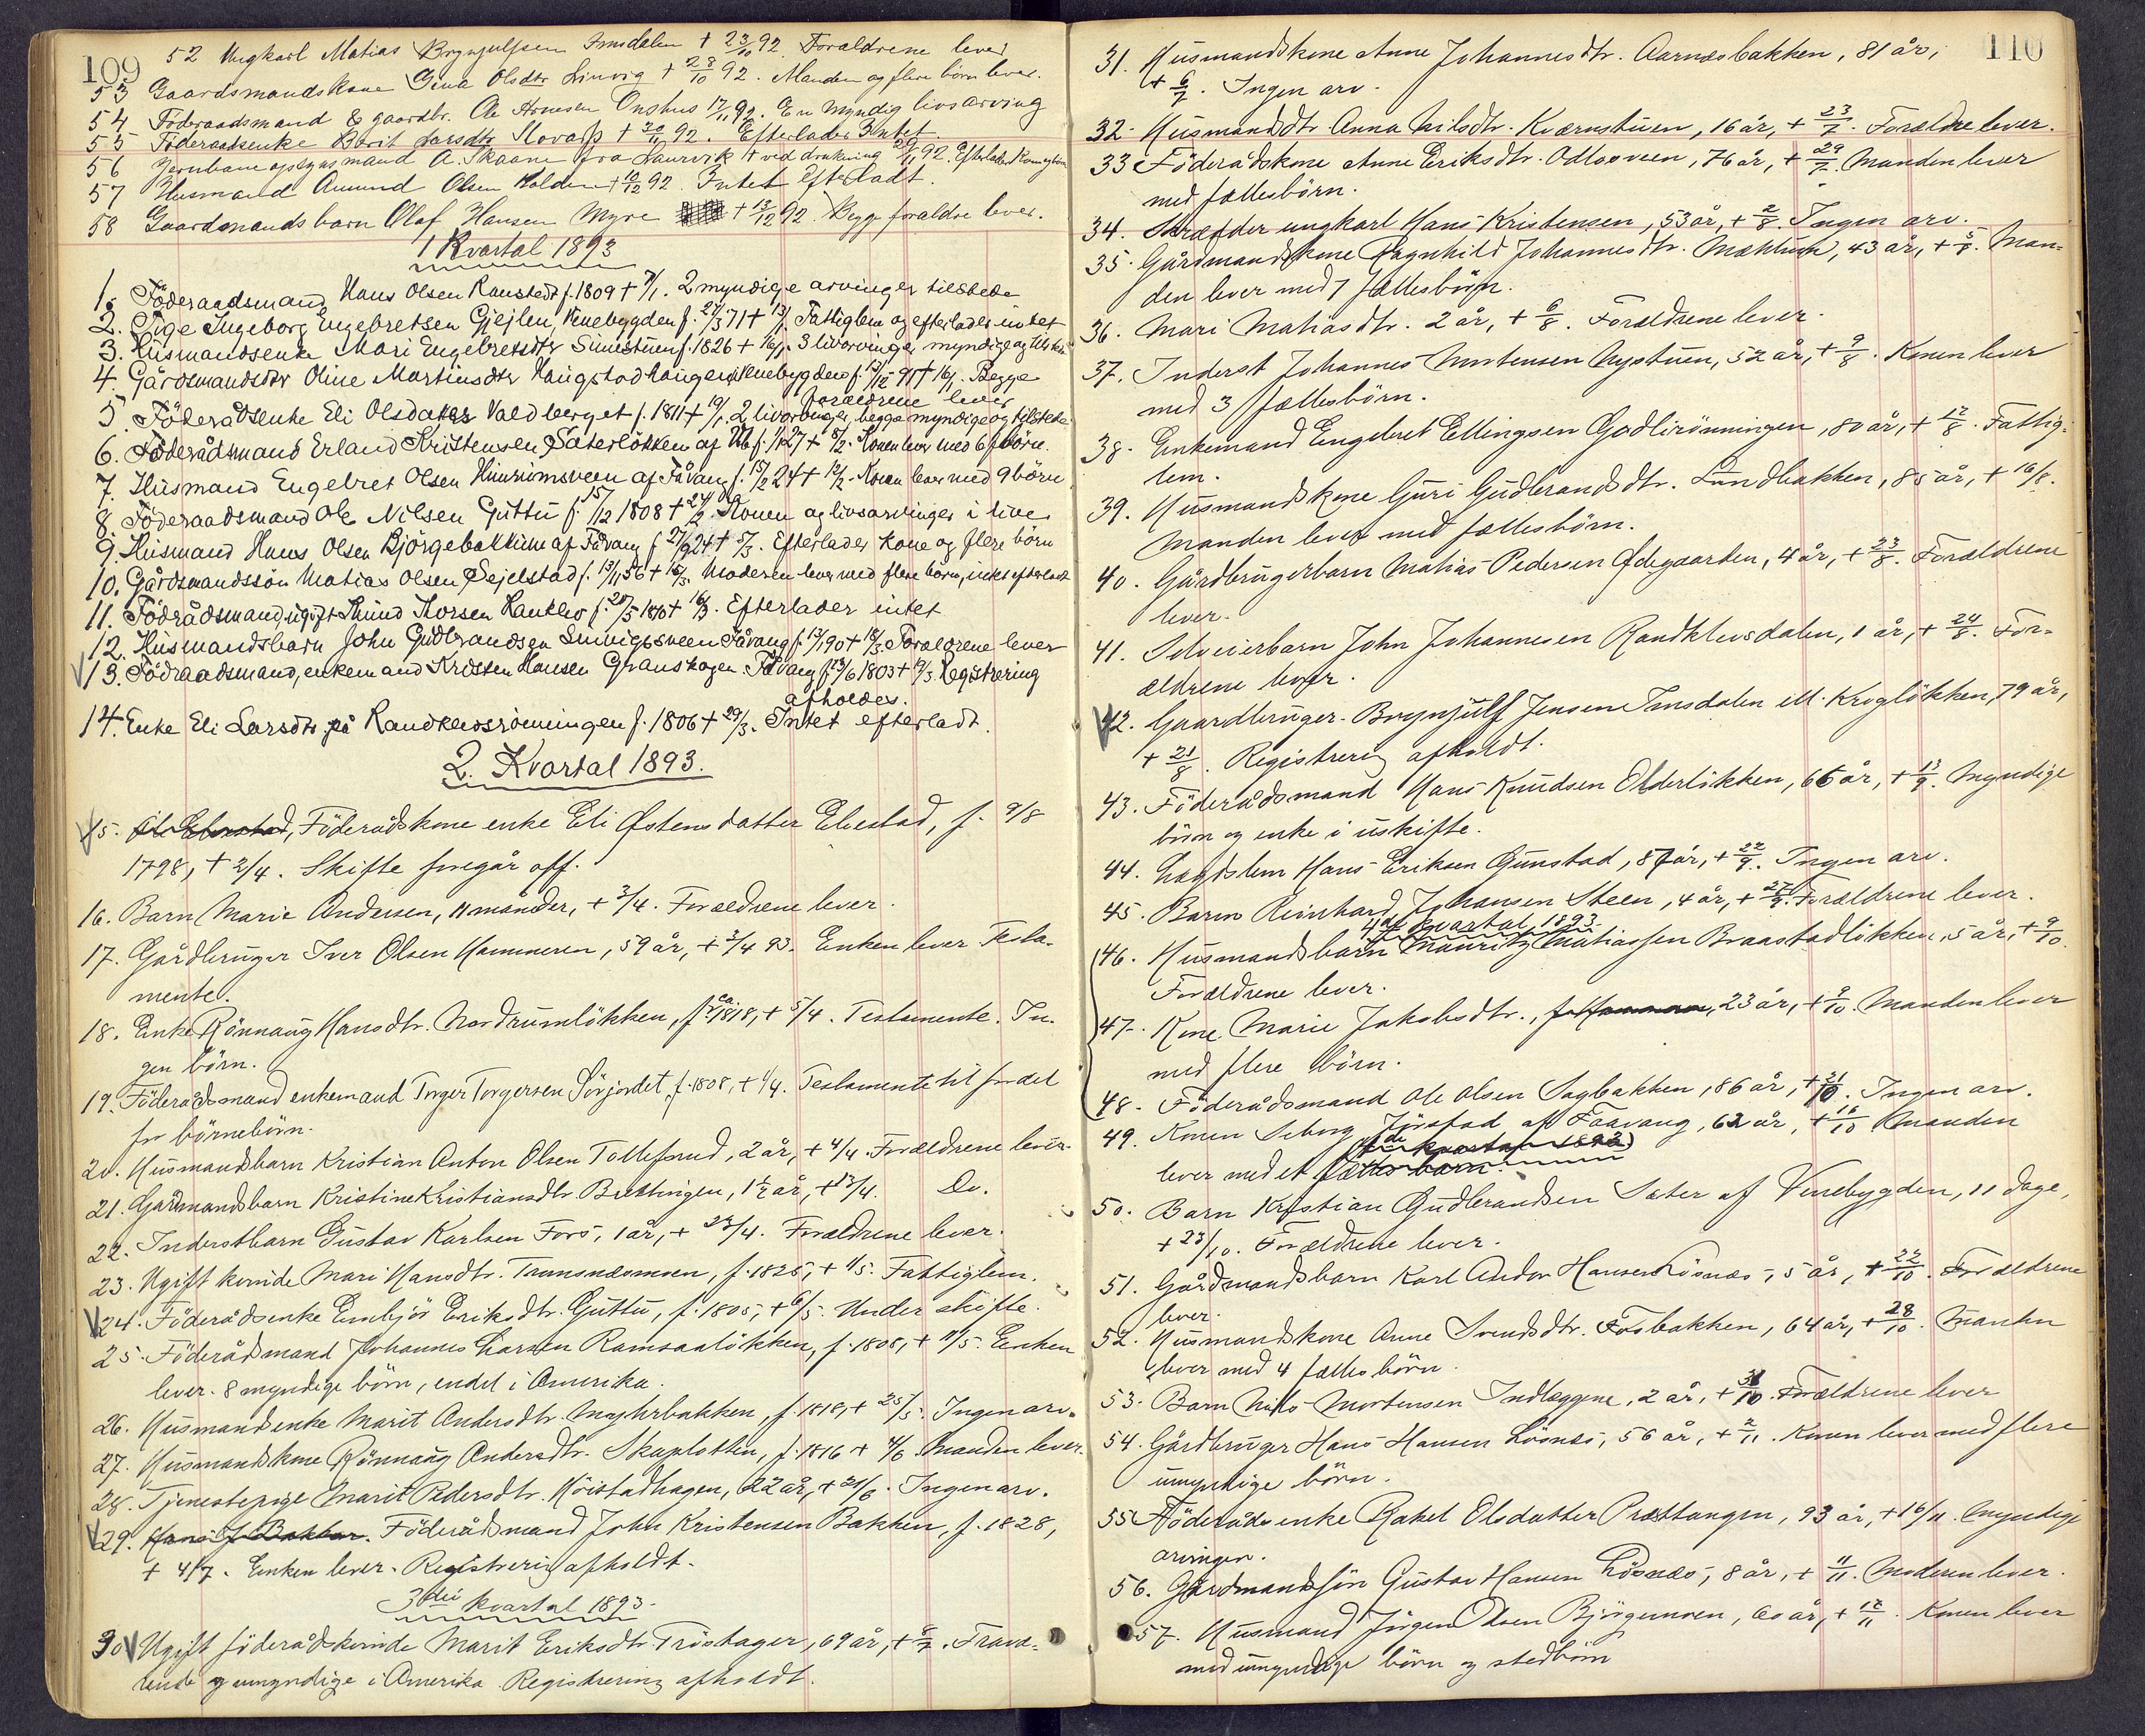 109
52 Ungkarl Matias Brynjulfsen Imsdalen + 23/10 92. Forældrene lever
53 Gaardsmandskone Gina Olsdtr Linvig + 28/10 92. Manden og flere børn lever.
54 Föderaadsmand & gaardbr. Ole Arnesen Onshus 17/11 92. En myndig livsarving
55 Föderaadsenke Berit Larsdtr + 20/11 92. Efterlader Intet.
56 Jernbaneopsynsmand A. Skaane fra Laurvik + ved drukning 29/11 92. Efterlader
57 Husmand Amund Olsen Kolden + 10/12 92. Intet Efterladt.
58 Gaardmandsbarn Olaf Hansen Myre + 13/12 92. Begge forældre lever.
1 Kvartal 1893
1. Föderaadsmand Hans Olsen Ranstedt f. 1809 + 7/1. 2 myndige arvinger tilstede
2. Pige Ingeborg Engebretsen Gjejlen, Venebygden f. 27/3 71 + 13/1. Fattiglem og efterlader intet
3. Husmandsenke Mari Engebretsdtr f. 1826 + 16/1. 3 livarvinger myndige og tilstede
4. Gårdsmandsdtr Oline Martinsdtr Haugstadhaugen Venebygden f. 13/12 91 + 16/1. Begge
forældrene lever
5. Föderådsenke Eli Olsdatter Valdberget f. 1811 + 19/1. 2 livarvinger, begge myndige og tilstede
6. Föderådsmand Erland Kristensen Sæterløkken af f. 1/1 27 + 5/2. Konen lever med 6 børn.
7. Husmand Engebret Olsen af Fåvang f. 15/2 24 + 12/2. Konen lever med 9 börn
8. Föderaadsmand Ole Nilsen Guttu f. 15/12 1808 + 24/2 Konen og livsarvinger i live
9. Husmand Hans Olsen Björgebakken af Fåvang f. 27/9 24 + 5/3. Efterlader kone og flere börn
10. Gårdsmandssön Matias Olsen Sejelstad f. 13/11 56 + 15/3. Moderen lever med flere börn, intet efterladt
11. Födrådsmand, ugift Knud Thorsen Hanklev f. 20/5 1810 + 16/3. Efterlader intet
12. Husmandsbarn John Gudbrandsen Fåvang f. 13/1 90 + 18/3 Forældrene lever
13. Födraadsmand, enkemand Kristen Hansen Granskogen Fåvang f. 13/6 1803 + 19/3. Registrering
afholdes.
14. Enke Eli Larsdtr. på Randklevsrönningen f. 1806 + 29/3. Intet efterladt.
2. Kvartal 1893.
15. Föderådskone enke Eli Østensdatter Elvestad, f. 9/8
1798, + 2/4. Skifte foregår off.
16. Barn Marie Andersen, 11 månder, + 3/4. Forældrene lever.
17. Gårdbruger Iver Olsen Hammeren, 59 år, + 3/4 93. Enken lever Testa-
mente.
18. Enke Rönnaug Hansdtr. Nordrumlökken, f. ca 1818, + 5/4. Testamente. In-
gen börn.
19. Föderådsmand enkemand Torger Torgersen Sörjordet, f. 1808, + 1/4. Testamente til fordel
for börnebörn.
20. Husmandsbarn Kristian Anton Olsen Tollefsrud, 2 år, + 4/4. Forældrene lever.
21. Gårdmandsbarn Kristine Kristiansdtr. Brettingen, 1½ år, + 13/4. Do.
22. Inderstbarn Gustav Karlsen Fors, 1 år, + 23/4. Forældrene lever.
23. Ugift kvinde Mari Hansdtr. Tromsnæsmoen, f. 1825, + 1/5. Fattiglem.
24. Föderådsenke Embjör Eriksdtr. Guttu, f. 1805, + 6/5. Under skifte.
25. Föderådmand Johannes Larsen Ramsaalökken, f. 1808, + 11/5. Enken
lever. 8 myndige börn, endel i Amerika.
26. Husmandsenke Marit Andersdtr. Myhrbakken, f. 1818, + 25/5. Ingen arv.
27. Husmandskone Rönnaug Andersdtr. Skaplokken, f. 1816 + 4/6. Manden lever.
28. Tjenestepige Marit Pedersdtr. Höistadhagen, 22 år, + 21/6. Ingen arv.
29. Föderådsmand John Kristensen Bakken, f. 1828,
+ 4/7. Enken lever. Registrering afholdt.
3die kvartal 1893.
30 Ugift föderådskvinde Marit Eriksdtr. Tröstager, 69 år, + 5/7. Fravæ-
rende og umyndige i Amerika. Registrering afholdt.
110
31. Husmandskone Anne Johannesdtr. Aarnæsbakken, 81 år,
+ 6/7. Ingen arv.
32. Husmandsdtr. Anna Nilsdtr. Kværnstuen, 16 år, + 23/7. Forældre lever.
33 Föderådskone Anne Eriksdtr. Odloveen, 76 år, + 29/7. Manden lever
med fællesbörn.
34. Skrædder ungkarl Hans Kristensen, 53 år, + 2/8. Ingen arv.
35. Gårdmandskone Ragnhild Johannesdtr. Mæhlum, 43 år, + 5/8. Man-
den lever med 7 fællesbörn.
36. Mari Matiasdtr. 2 år, + 6/8. Forældrene lever.
37. Inderst Johannes Mortensen Nystuen, 52 år, + 9/8. Konen lever
med 3 fællesbörn.
38. Enkemand Engebret Ellingsen Godlirönningen, 80 år, + 12/8. Fattig-
lem.
39. Husmandskone Guri Gudbrandsdtr. Sandbakken, 85 år, + 16/8.
Manden lever med fællesbörn.
40. Gårdbrugerbarn Matias Pedersen Ødegaarden, 4 år, + 23/8. Forældrene
lever.
41. Selveierbarn John Johannesen Randklevsdalen, 1 år, + 24/8. For-
ældrene lever.
42. Gaardbruger Brynjulf Jensen Imsdalen ell. Kroglökken, 79 år,
+ 21/8. Registrering afholdt.
43. Föderådsmand Hans Knudsen Olderlökken, 66 år, + 13/9. Myndige
börn og enke i uskifte.
44. Lægdslem Hans Eriksen Gunstad, 87 år, + 22/9. Ingen arv.
45. Barn Reinhard Johansen Steen, 4 år, + 27/9. Forældrene lever.
4de kvartal 1893
46. Husmandsbarn Mauritz Matiassen Braastadlökken, 5 år, + 9/10.
Forældrene lever.
47. Kone Marie Jakobsdtr., 23 år, + 9/10. Manden lever
med flere börn.
48. Föderådsmand Ole Olsen Sagbakken, 86 år, + 21/10. Ingen arv.
49. Konen Siborg Jörstad af Faavang, 62 år, + 16/10 Manden
4de kvartal 1893
lever med et fælles barn.
50. Barn Kristian Gudbrandsen Sæter af Venebygden, 11 dage,
+ 23/10. Forældrene lever.
51. Gårdmandsbarn Karl Andor Hansen Lösnæs, 5 år, + 22/10. Forældrene
lever.
52. Husmandskone Anne Svendsdtr. Fosbakken, 64 år, + 28/10. Manden
lever med 4 fælles börn.
53. Barn Nils Mortensen Indlæggene, 2 år, + 31/10. Forældrene lever
54. Gårdbruger Hans Hansen Lösnæs, 56 år, + 2/11. Konen lever med flere
umyndige börn.
55 Föderådsenke Rakel Olsdatter Præsttangen, 93 år, + 16/11. Myndige
arvinger.
56. Gårdmandssön Gustav Hansen Lösnæs, 8 år, + 11/11. Moderen lever.
57. Husmand Jörgen Olsen Björgemoen, 60 år, + 12/11. Konen lever
med umyndige börn og stedbörn